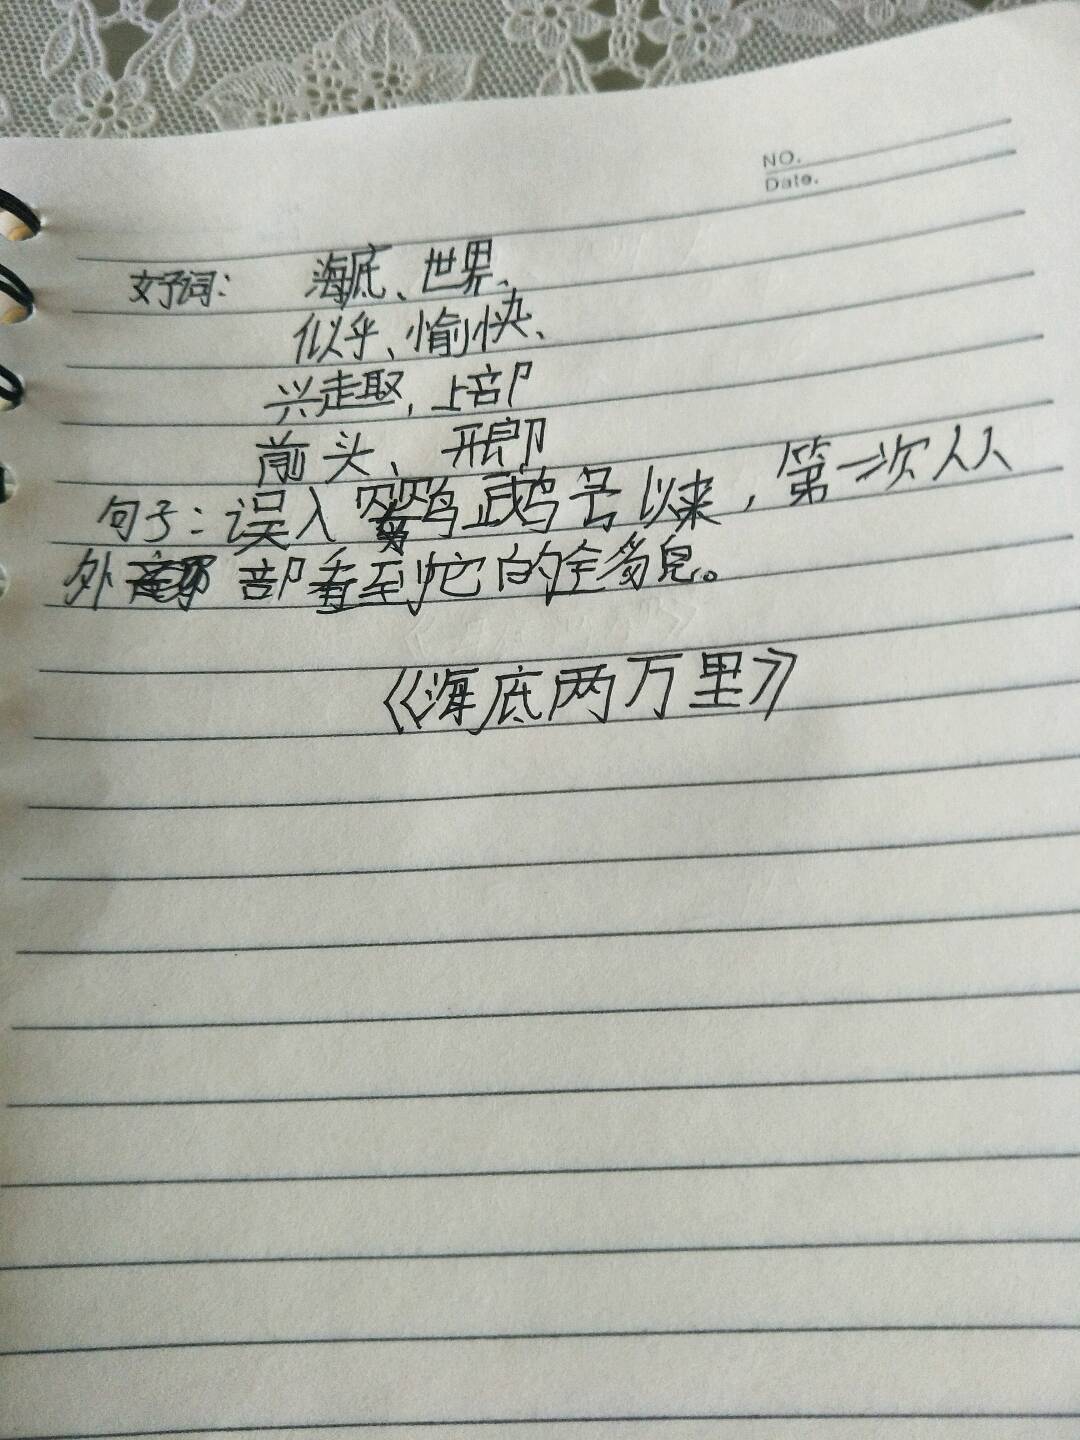 NO.
Date.
好词： 海底、世界、
似乎、愉快、
兴趣，上部
前头、开朗
句子：误入鹦鹉号以来，第一次从
外部看到它的全貌。
《海底两万里》